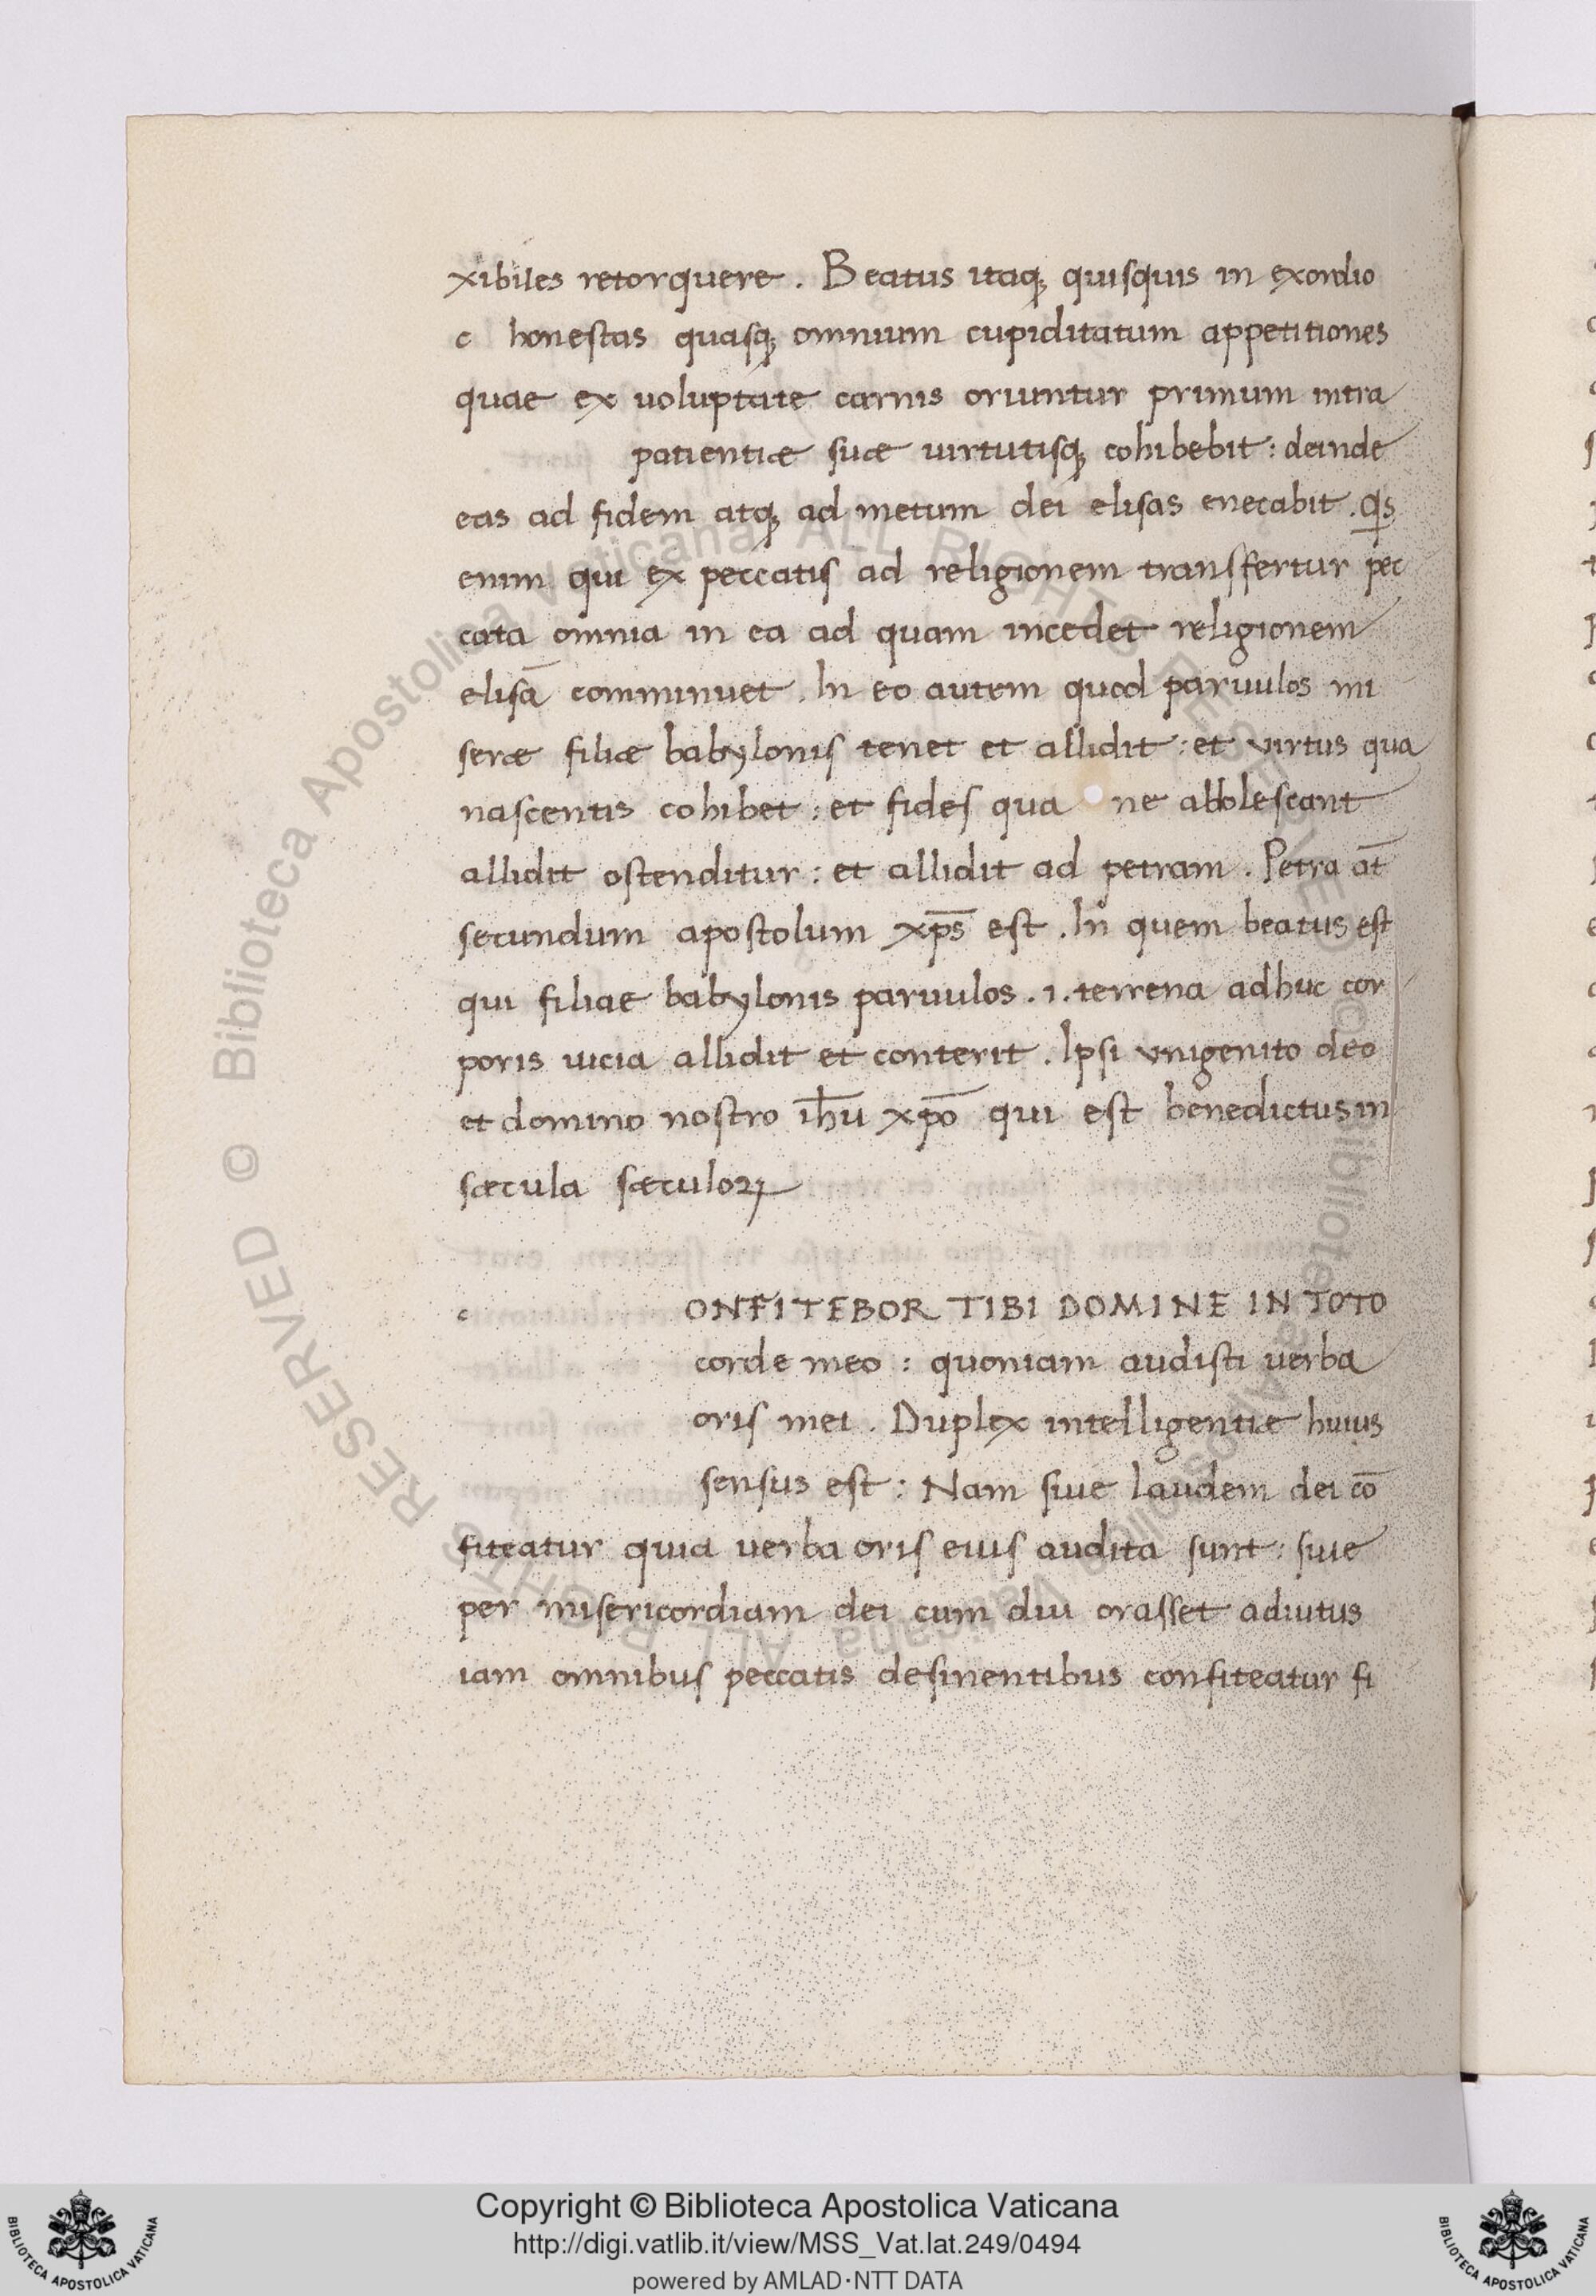 xibiles retorquere. Beatus itaq; quisquis in exordio
c honestas quasq; omnium cupiditatum appetitiones
quae ex uoluptate carnis oriuntur primum intra
patientiæ suæ uirtutisq; cohibebit: deinde
eas ad fidem atq; ad metum dei elisas enecabit. Qs
enim qui ex peccatis ad religionem transfertur pec
cata omnia in ea ad quam incedet religionem
elisā comminuet. In eo autem quod paruulos mi
seræ filiæ babylonis tenet et allidit: et virtus qua
nascentis cohibet: et fides qua ne abolescant
allidit ostenditur: et allidit ad petram. Petra āt
secundum apostolum xp̄s est. In quem beatus est
qui filiae babylonis paruulos .i. terrena adhuc cor
poris uicia allidit et conterit. Ipsi vnigenito deo
et domino nostro ih̄u xp̄o qui est benedictus in
sæcula sæculoꝝ
c ONFITEBOR TIBI DOMINE IN TOTO
corde meo: quoniam audisti uerba
oris mei. Duplex intelligentiæ huius
sensus est: Nam siue laudem dei cō
fiteatur quia uerba oris eius audita sunt: siue
per misericordiam dei cum diu orasset adiutus
iam omnibus peccatis desinentibus confiteatur si
© Biblioteca Apostolica Vaticana ALL RIGHTS RESERVED
© Biblioteca Apostolica Vaticana ALL RIGHTS RESERVED
Copyright © Biblioteca Apostolica Vaticana
http://digi.vatlib.it/view/MSS_Vat.lat.249/0494
powered by AMLAD·NTT DATA
BIBLIOTECA APOSTOLICA VATICANA
BIBLIOTECA APOSTOLICA VATICANA